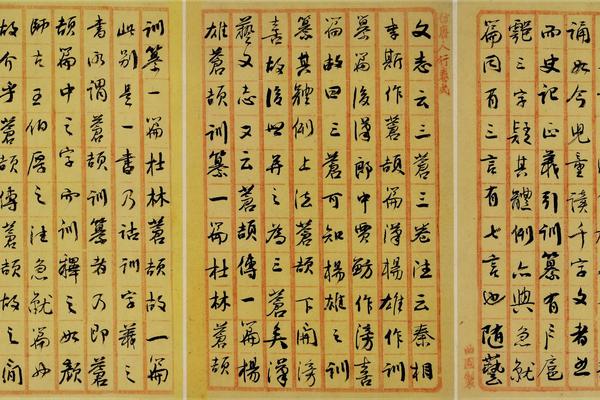 誦如今兒童讀千字文者也
而史記正義引訓纂有户扈
三字疑其體例亦與急就
篇同有三言有七言也隨藝
曲園製
仿唐人行卷式
文志云三蒼三卷注云秦相
李斯作蒼頡篇漢楊雄作訓
纂篇後漢郎中賈魴作滂喜
篇故曰三蒼可知楊雄之訓
纂其體例上法蒼頡下開滂
喜故後世并之為三蒼矣漢
藝文志又云蒼頡傳一篇楊
雄蒼頡訓纂一篇杜林蒼頡
訓纂一篇杜林蒼頡故一篇
此別是一書乃詁訓字義之
書所謂蒼頡訓纂者乃即蒼
頡篇中之字而訓釋之如顏
師古王伯厚之注急就篇
故介乎蒼頡傳蒼頡故之間